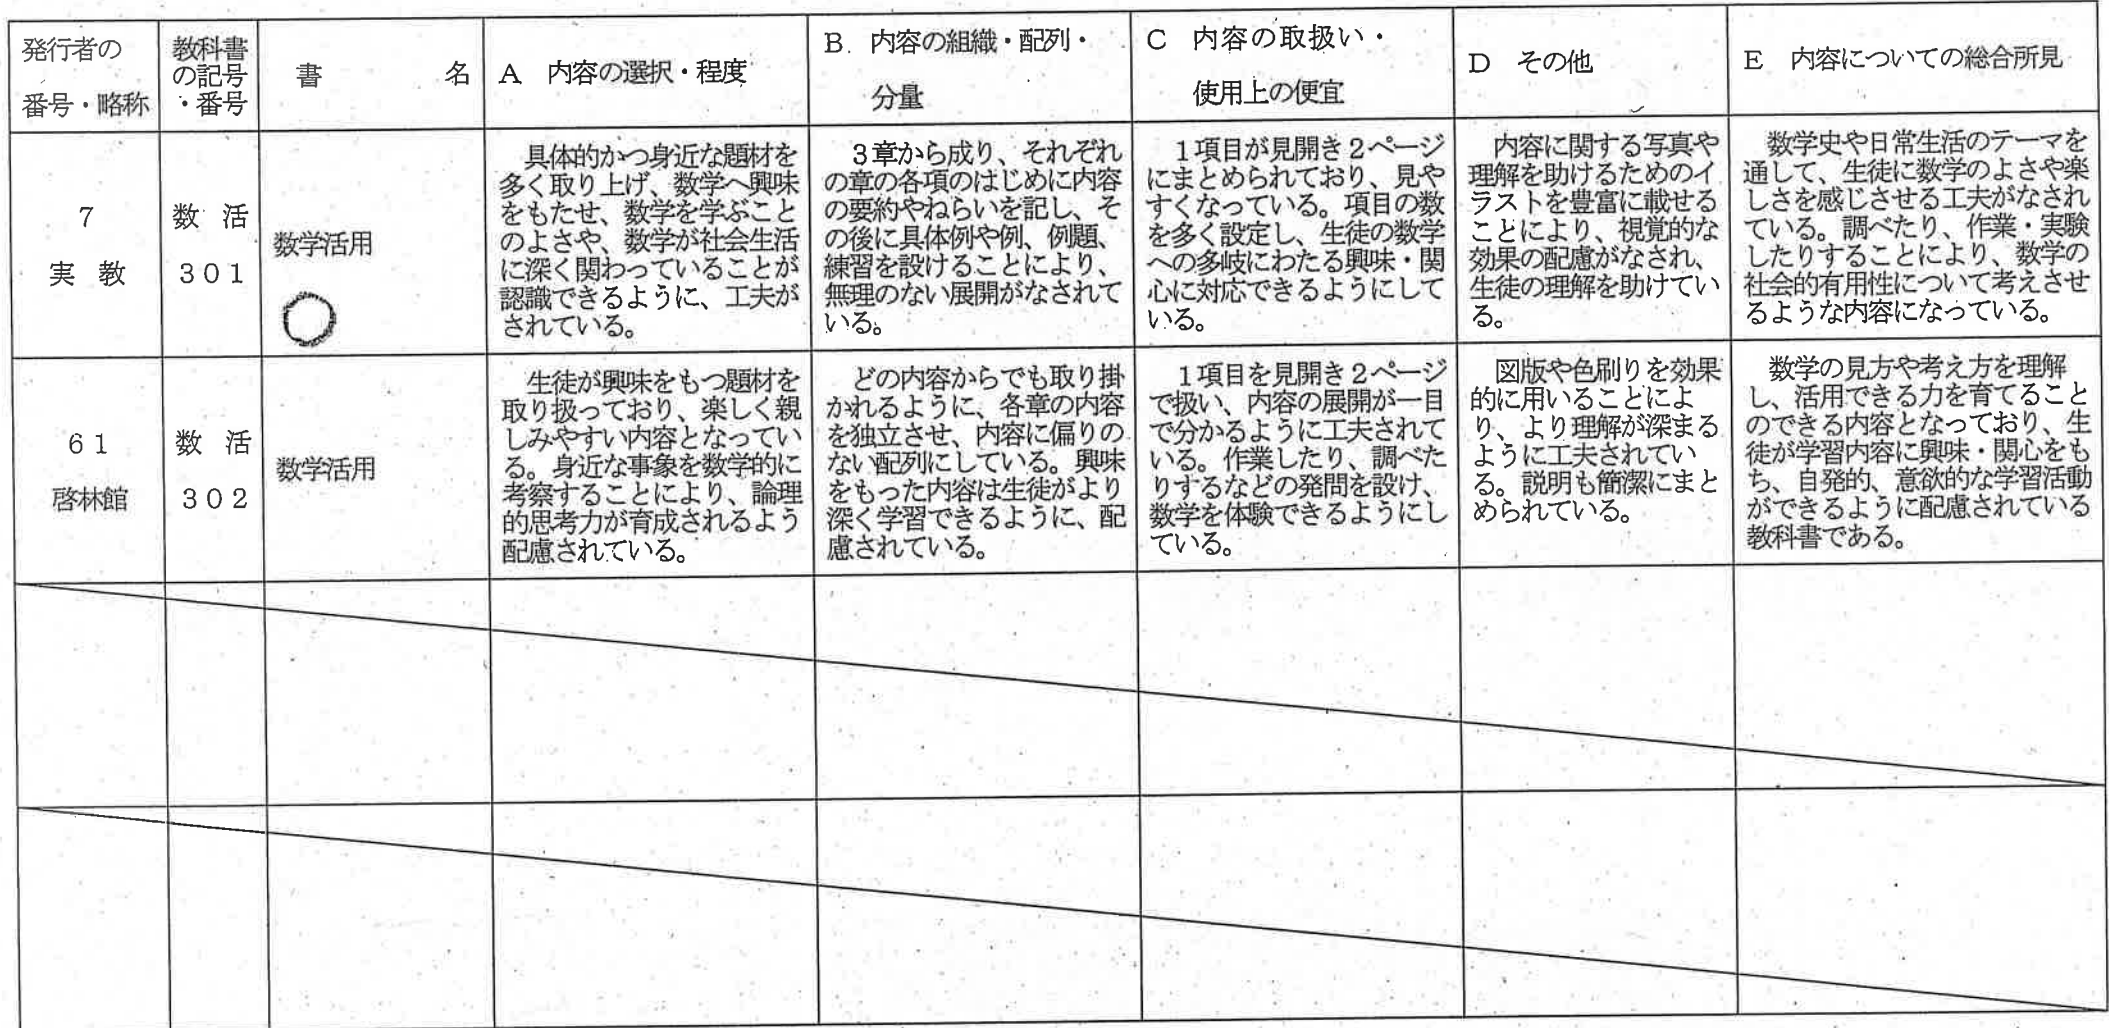 発行者の
番号・略称
教科書
の記号
・番号
書 名
A 内容の選択・程度
B 内容の組織・配列・
分量
C 内容の取扱い・
使用上の便宜
D その他
E 内容についての総合所見
7
実 教
数 活
301
数学活用
具体的かつ身近な題材を
多く取り上げ、数学へ興味
をもたせ、数学を学ぶこと
のよさや、数学が社会生活
に深く関わっていることが
認識できるように、工夫が
されている。
3章から成り、それぞれ
の章の各項のはじめに内容
の要約やねらいを記し、そ
の後に具体例や例、例題、
練習を設けることにより、
無理のない展開がなされて
いる。
1項目が見開き2ページ
にまとめられており、見や
すくなっている。項目の数
を多く設定し、生徒の数学
への多岐にわたる興味・関
心に対応できるようにして
いる。
内容に関する写真や
理解を助けるためのイ
ラストを豊富に載せる
ことにより、視覚的な
効果の配慮がなされ、
生徒の理解を助けてい
る。
数学史や日常生活のテーマを
通して、生徒に数学のよさや楽
しさを感じさせる工夫がなされ
ている。調べたり、作業・実験
したりすることにより、数学の
社会的有用性について考えさせ
るような内容になっている。
61
啓林館
数 活
302
数学活用
生徒が興味をもつ題材を
取り扱っており、楽しく親
しみやすい内容となってい
る。身近な事象を数学的に
考察することにより、論理
的思考力が育成されるよう
配慮されている。
どの内容からでも取り掛
かれるように、各章の内容
を独立させ、内容に偏りの
ない配列にしている。興味
をもった内容は生徒がより
深く学習できるように、配
慮されている。
1項目を見開き2ページ
で扱い、内容の展開が一目
で分かるように工夫されて
いる。作業したり、調べた
りするなどの発問を設け、
数学を体験できるようにし
ている。
図版や色刷りを効果
的に用いることによ
り、より理解が深まる
ように工夫されてい
る。説明も簡潔にまと
められている。
数学の見方や考え方を理解
し、活用できる力を育てること
のできる内容となっており、生
徒が学習内容に興味・関心をも
ち、自発的、意欲的な学習活動
ができるように配慮されている
教科書である。